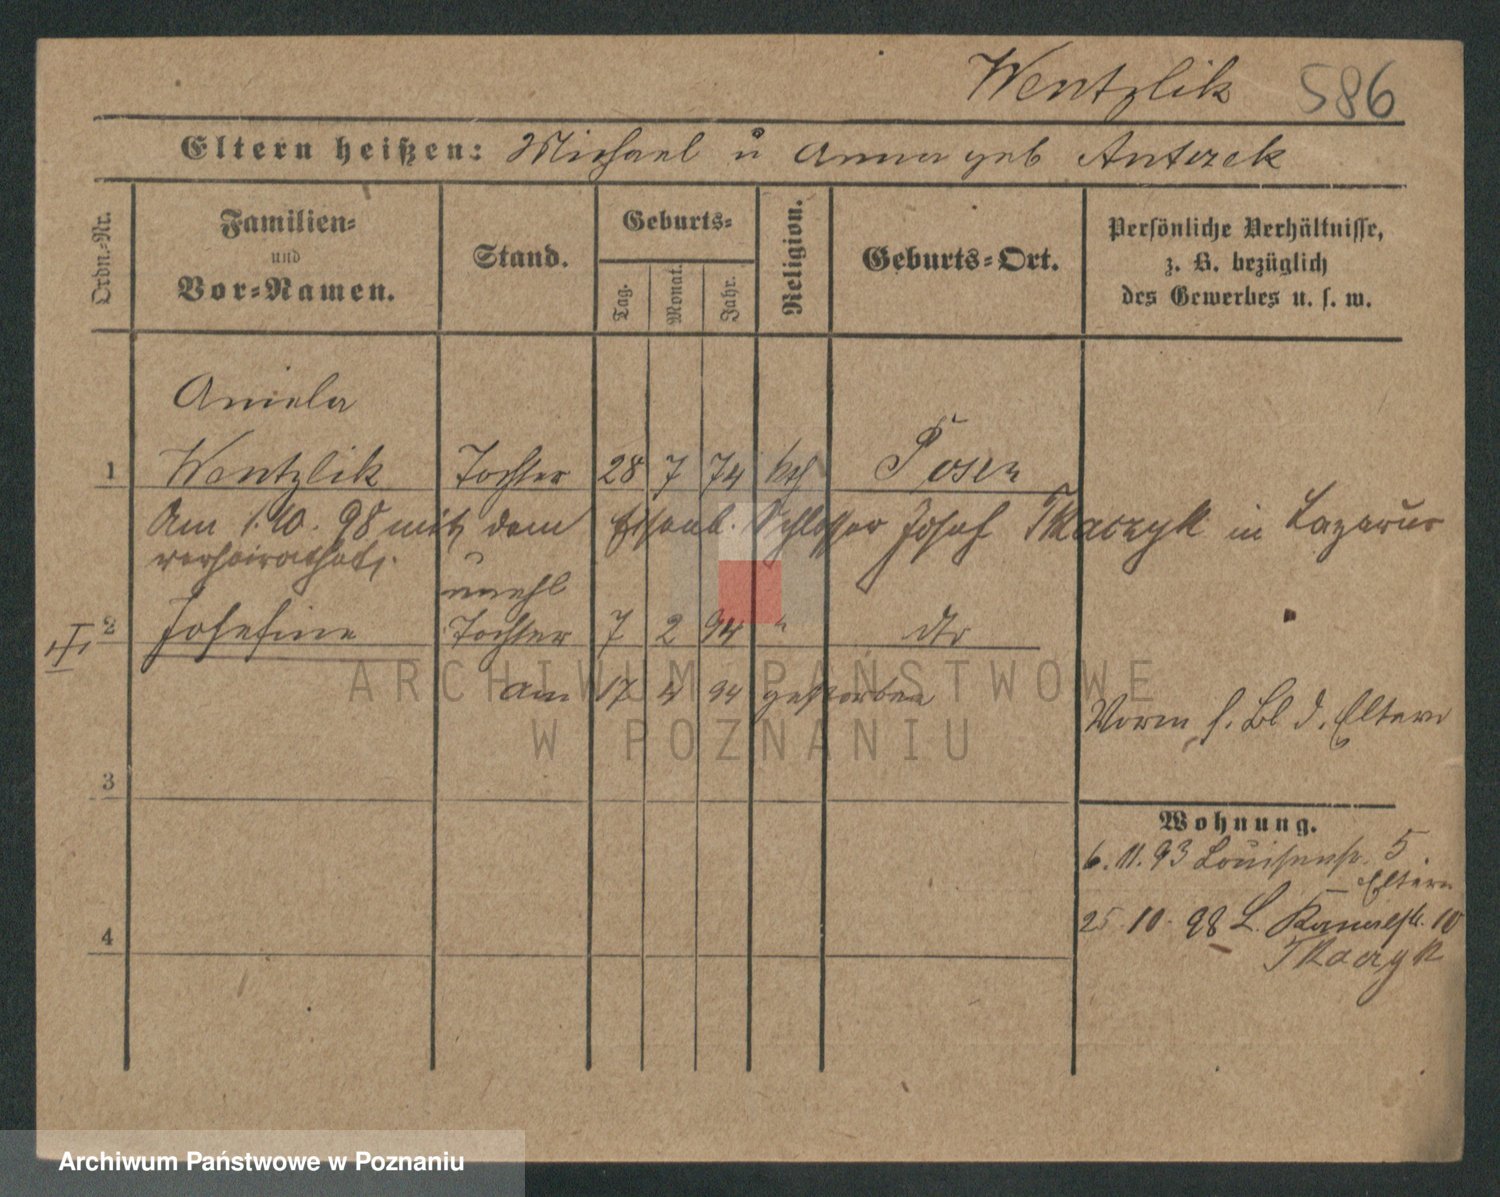 Wentzlik 586
Eltern heißen: Michael u Anna geb Antczek
Ordn.-Nr.
Familien-
und
Vor-Namen.
Stand.
Geburts-
Tag.
Monat.
Jahr.
Religion.
Geburts-Ort.
Persönliche Verhältnisse,
z. B. bezüglich
des Gewerbes u. s. w.
Aniela
1 Wentzlik Tochter 28 7 74 kth Posen
Am 1.10.98 mit dem Eisenb. Schlosser Josef Tkaczyk in Lazarus
verheirathet.
unehl
2 Josefine Tochter 7 2 94 " dto
am 17 4 94 gestorben
Vorm s. Bl d. Eltern
3
Wohnung.
6.11.93 Louisenstr. 5
Eltern
25.10.98 L. Kanalstr. 10
Tkaczyk
4
ARCHIWUM PAŃSTWOWE
W POZNANIU
Archiwum Państwowe w Poznaniu